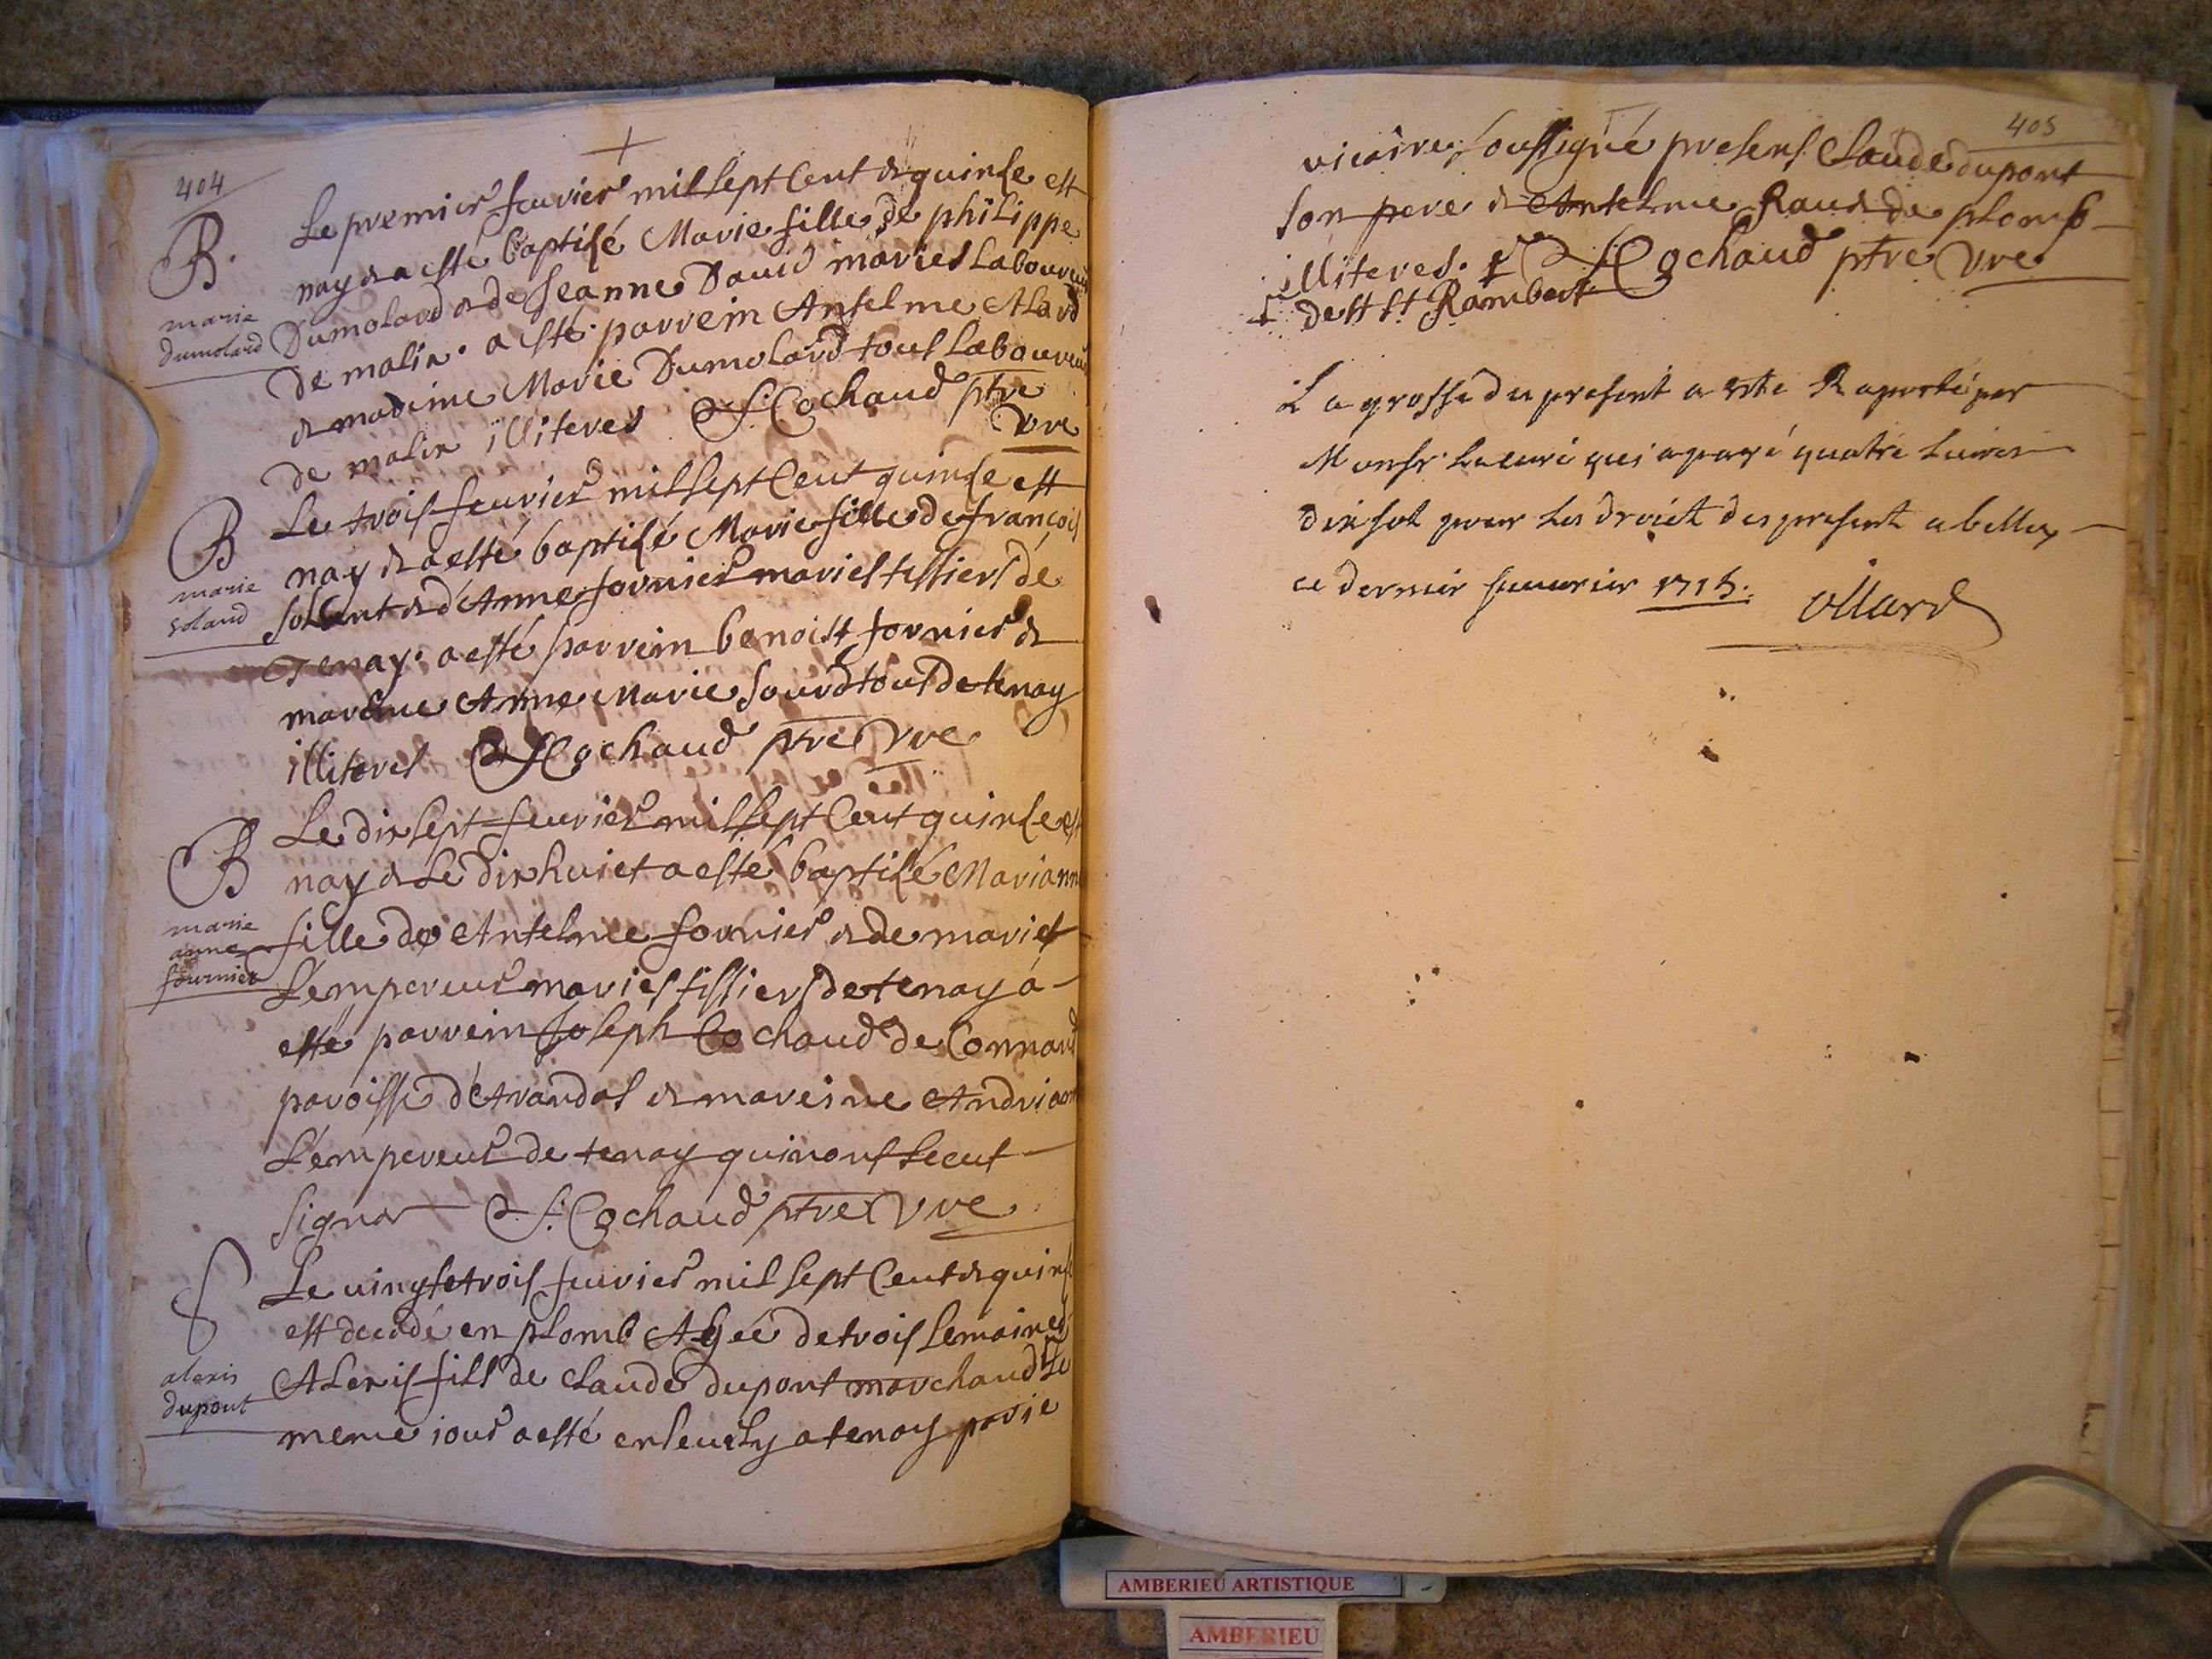 404
B.
marie
dumolard
Le premier feurier mil sept cent & quinse est
nay & a esté baptisé Marie fille de philippe
Dumolard & de Jeanne Dauid mariés laboureur
de malix. a esté parrein Antelme Alard
& mareine Marie Dumolard tous laboureur
de malix illiteres S: Cochaud ptre
vre
B
marie
soland
Le trois feurier mil sept cent quinse est
nay & a esté baptisé Marie fille de françois
& d'Anne fornier mariés tissiers de
Tenay. a esté parrein benoist fornier &
mareine Anne Marie sourd tous de tenay
illiteres S Cochaud ptre vre
B
marie
anne
fournier
Le dix sept feurier mil sept cent quinse est
nay & le dix huict a esté baptisé Mariann
fille de Antelme fornier & de marie
L'empereur mariés tissiers de tenay a
esté parrein Joseph Cochaud de Connand
paroisse d'Arandas & mareine Andriann
L'empereur de tenay qui n'ont sceut
signer S: Cochaud ptre vre
S
alexis
dupont
Le vingt et trois feurier mil sept cent & quins
est decedé en plomb Agée de trois semaines
Alexis fils de claude dupont marchand le
meme iour a esté enseuely a tenay par ie
405
vicaire soussigné presens Claude dupont
son pere & Antelme Raud de plomb
illiteres. ‡ S Cochaud ptre vre
‡ de st Rambert
La grosse du present a este Raporté par
Monsr. le curé qui a payé quatre liures
dix sol pour les droict des present a belley
ce dernier feuurier 1715. Allard
AMBERIEU ARTISTIQUE
AMBERIEU